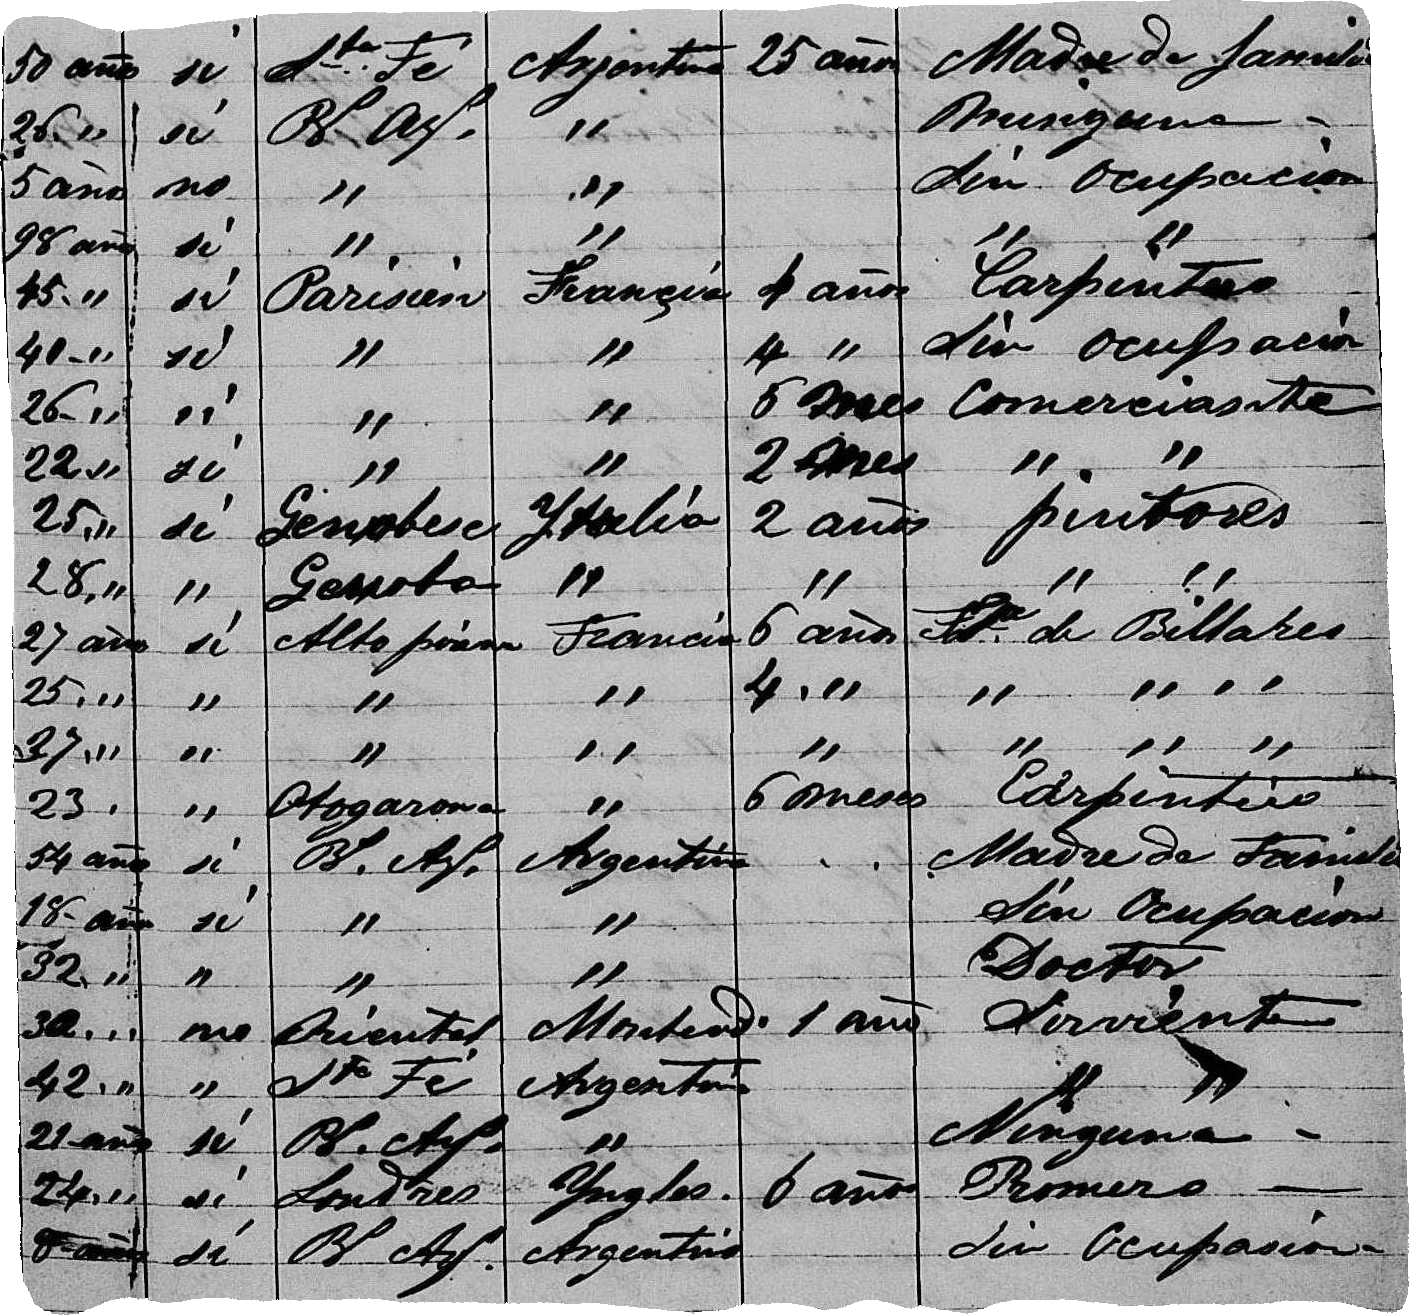 50 años sí Sta. Fé Arjentina 25 años Madre de familia
26 " sí Bs. Ays. " Ninguna -
5 años no " " Sin Ocupacion
98 años sí " " " "
45 " sí Parisien Francia 4 años Carpintero
40 " sí " " 4 " Sin ocupacion
26 " sí " " 5 mes Comerciante
22 " sí " " 2 mes " "
25 " sí Genobese Ytalia 2 años pintores
28 " " Genoba " " " "
27 años sí Francia 6 años de Billares
25 " " " " 4 " " " "
37 " " " " " " " "
23 " " 6 meses Carpintero
54 años sí Bs. Ays. Argentina Madre de Familia
18 años sí " " Sin Ocupacion
32 " " " " Doctor
30 " no Oriental Montevdo. 1 año Sirviente
42 " " Sta Fé Argentina " "
21 años sí Bs. Ays. " Ninguna -
24 " sí Londres Yngles. 6 años Romero —
8 años sí Bs Ays. Argentino Sin Ocupasion -